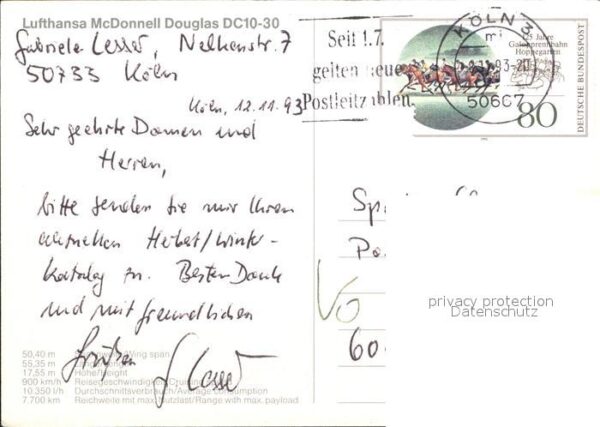 Lufthansa McDonnell Douglas DC10-30
Gabriele Lesser, Nelkenstr. 7
50733 Köln
Köln, 12.11.93
Sehr geehrte Damen und
Herren,
bitte senden Sie mir Ihren
aktuellen Herbst/Winter-
Katalog zu. Besten Dank
und mit freundlichen
Grüßen
G Lesser
50,40 m Spannweite/Wing span
55,35 m
17,55 m Höhe/Height
900 km/h Reisegeschwindigkeit/Cruising
10.350 l/h Durchschnittsverbrauch/Average consumption
7.700 km Reichweite mit max. Nutzlast/Range with max. payload
Seit 1.7.
gelten neue
Postleitzahlen.
KÖLN 3
mi
93-20
50667
125 Jahre
Galopprennbahn
Hoppegarten
80
DEUTSCHE BUNDESPOST
Sp
Po
Vo
60
privacy protection
Datenschutz